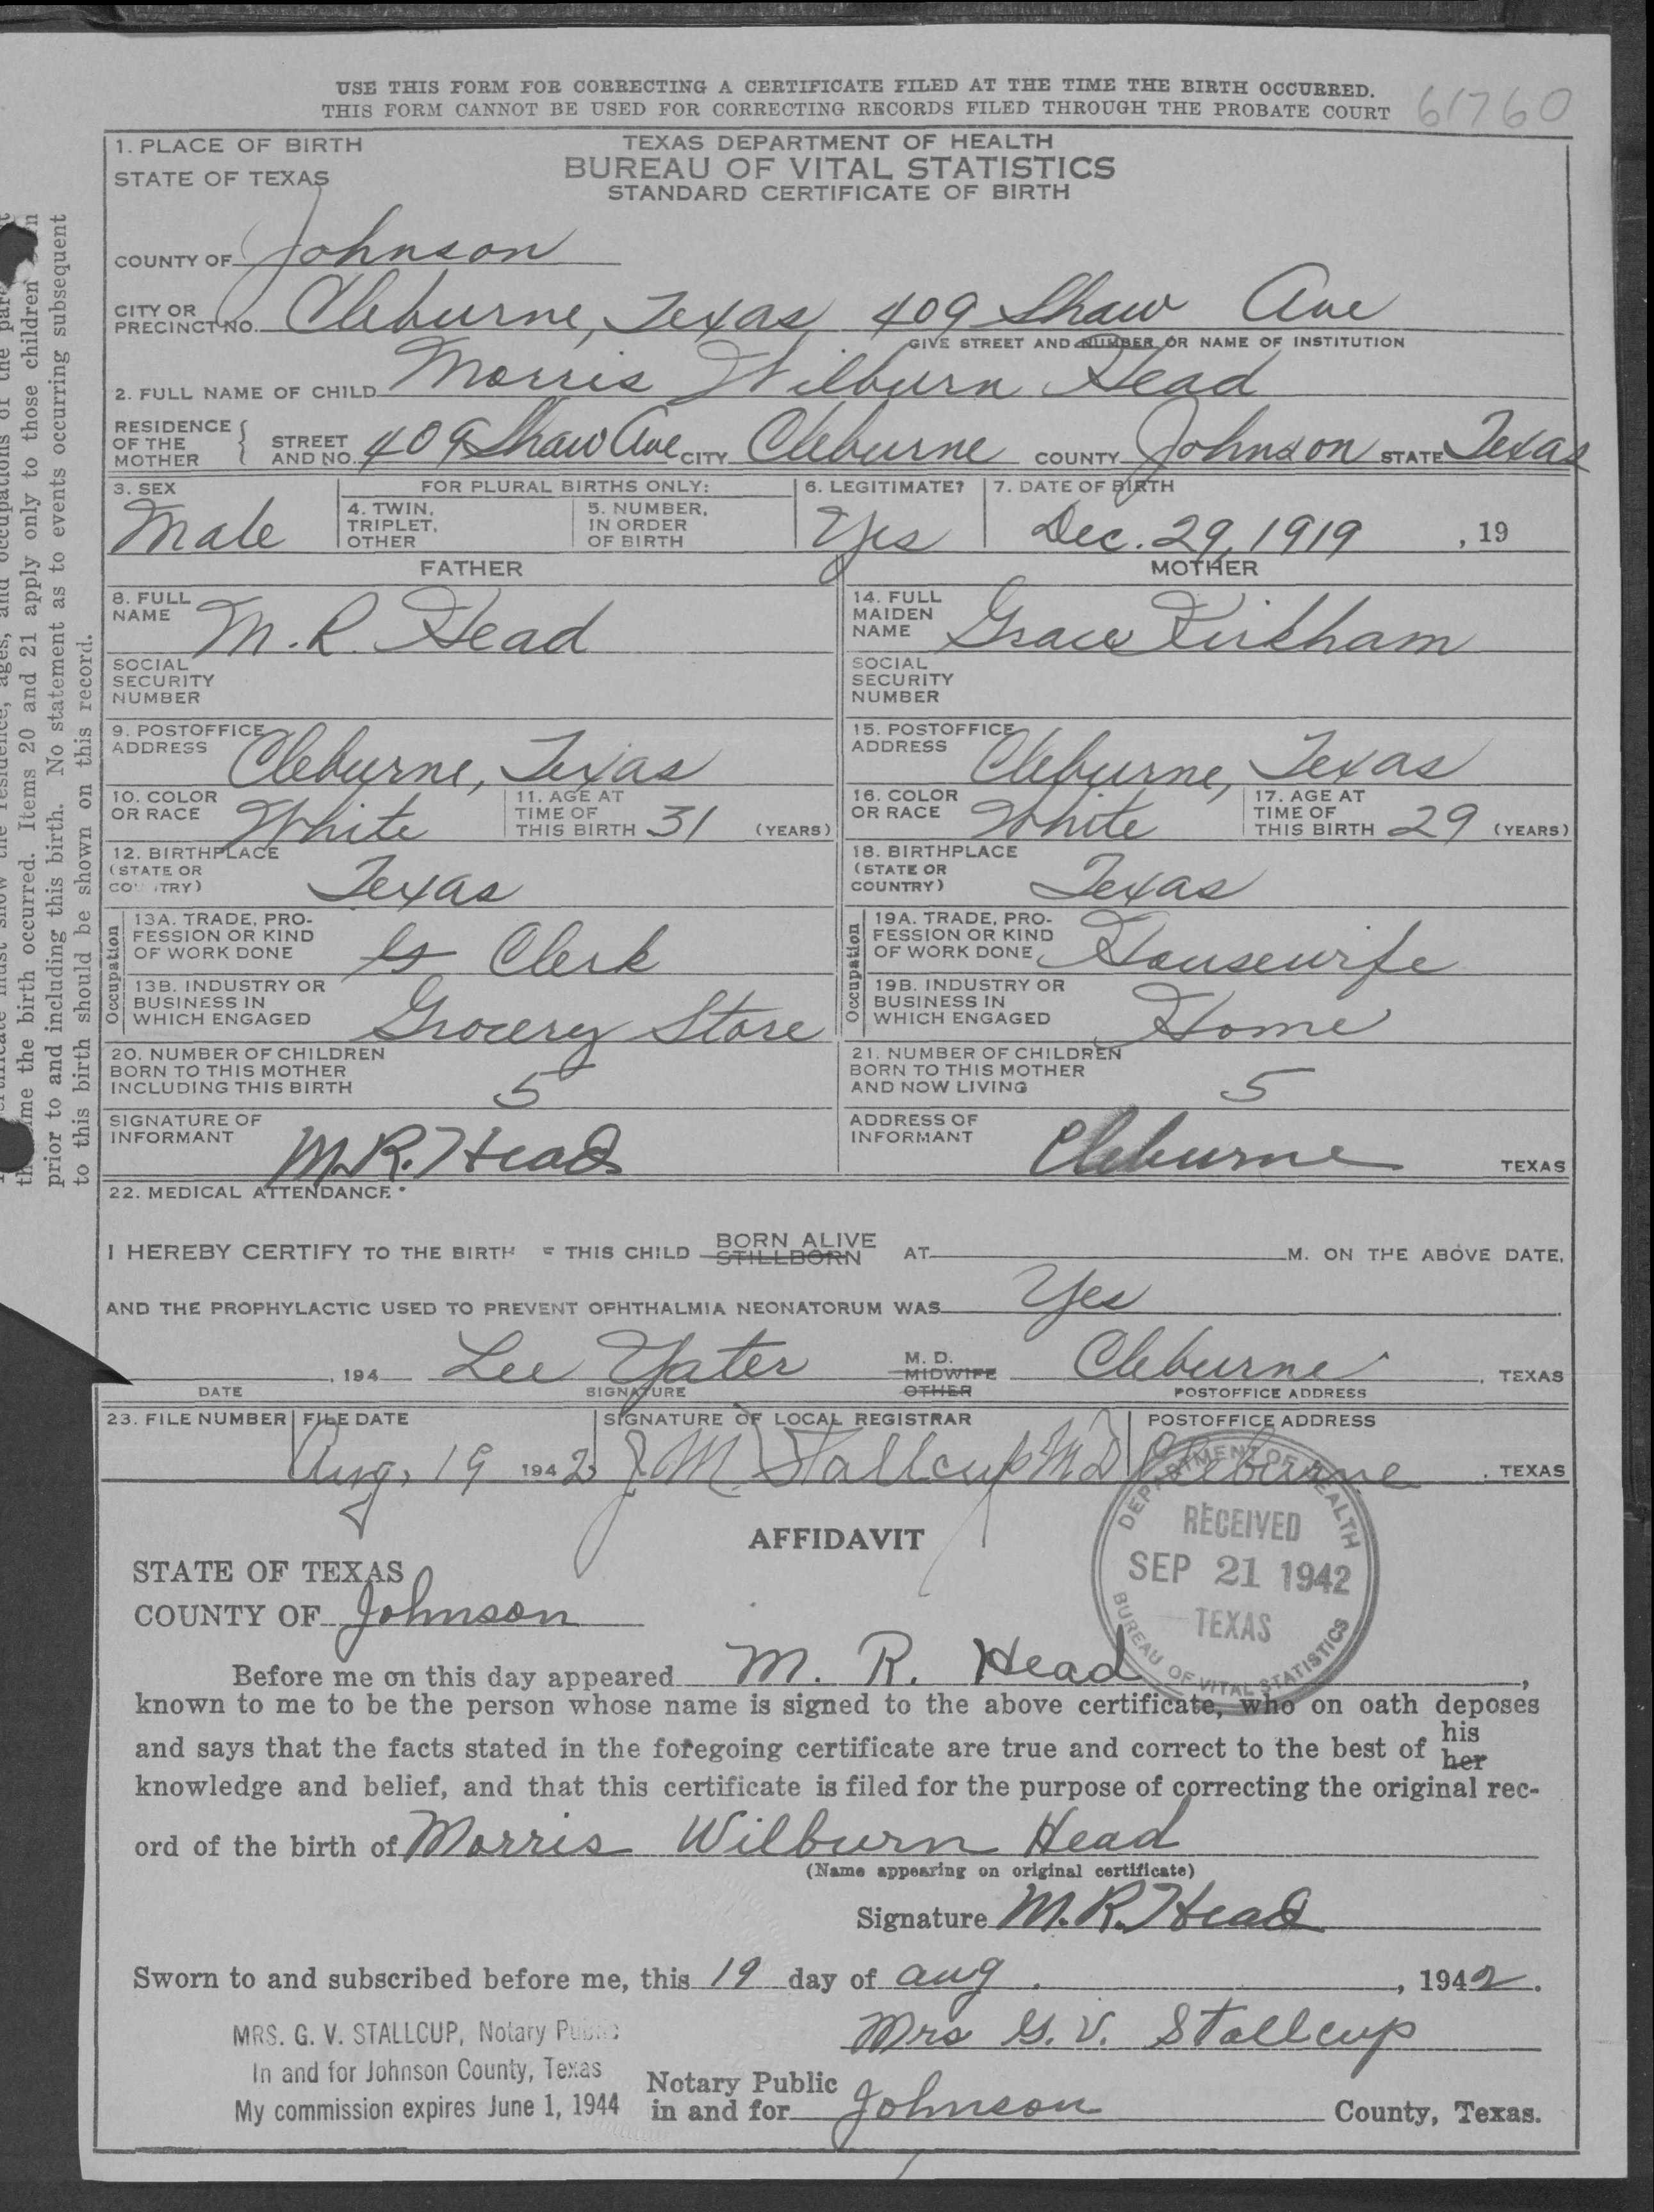 USE THIS FORM FOR CORRECTING A CERTIFICATE FILED AT THE TIME THE BIRTH OCCURRED.
THIS FORM CANNOT BE USED FOR CORRECTING RECORDS FILED THROUGH THE PROBATE COURT 61760
1. PLACE OF BIRTH
STATE OF TEXAS
TEXAS DEPARTMENT OF HEALTH
BUREAU OF VITAL STATISTICS
STANDARD CERTIFICATE OF BIRTH
COUNTY OF Johnson
CITY OR PRECINCT NO. Cleburne, Texas, 409 Shaw Ave
GIVE STREET AND NUMBER OR NAME OF INSTITUTION
2. FULL NAME OF CHILD Morris Wilburn Head
RESIDENCE OF THE MOTHER { STREET AND NO. 409 Shaw Ave CITY Cleburne COUNTY Johnson STATE Texas
3. SEX Male
FOR PLURAL BIRTHS ONLY:
4. TWIN, TRIPLET, OTHER
5. NUMBER, IN ORDER OF BIRTH
6. LEGITIMATE? Yes
7. DATE OF BIRTH Dec. 29, 1919 , 19
FATHER
8. FULL NAME M. R. Head
SOCIAL SECURITY NUMBER
9. POSTOFFICE ADDRESS Cleburne, Texas
10. COLOR OR RACE White
11. AGE AT TIME OF THIS BIRTH 31 (YEARS)
12. BIRTHPLACE (STATE OR COUNTRY) Texas
Occupation
13A. TRADE, PROFESSION OR KIND OF WORK DONE Clerk
13B. INDUSTRY OR BUSINESS IN WHICH ENGAGED Grocery Store
MOTHER
14. FULL MAIDEN NAME Grace Kirkham
SOCIAL SECURITY NUMBER
15. POSTOFFICE ADDRESS Cleburne, Texas
16. COLOR OR RACE White
17. AGE AT TIME OF THIS BIRTH 29 (YEARS)
18. BIRTHPLACE (STATE OR COUNTRY) Texas
Occupation
19A. TRADE, PROFESSION OR KIND OF WORK DONE Housewife
19B. INDUSTRY OR BUSINESS IN WHICH ENGAGED Home
20. NUMBER OF CHILDREN BORN TO THIS MOTHER INCLUDING THIS BIRTH 5
21. NUMBER OF CHILDREN BORN TO THIS MOTHER AND NOW LIVING 5
SIGNATURE OF INFORMANT M.R. Head
ADDRESS OF INFORMANT Cleburne TEXAS
22. MEDICAL ATTENDANCE
I HEREBY CERTIFY TO THE BIRTH THIS CHILD BORN ALIVE STILLBORN AT M. ON THE ABOVE DATE,
AND THE PROPHYLACTIC USED TO PREVENT OPHTHALMIA NEONATORUM WAS Yes
, 194 Lee Yater M. D. MIDWIFE OTHER Cleburne , TEXAS
DATE SIGNATURE POSTOFFICE ADDRESS
23. FILE NUMBER FILE DATE SIGNATURE OF LOCAL REGISTRAR POSTOFFICE ADDRESS
Aug, 19 1942 J. M. Stallcup MD Cleburne , TEXAS
DEPARTMENT OF HEALTH
RECEIVED
SEP 21 1942
TEXAS
BUREAU OF VITAL STATISTICS
AFFIDAVIT
STATE OF TEXAS
COUNTY OF Johnson
Before me on this day appeared M. R. Head ,
known to me to be the person whose name is signed to the above certificate, who on oath deposes
and says that the facts stated in the foregoing certificate are true and correct to the best of his her
knowledge and belief, and that this certificate is filed for the purpose of correcting the original rec-
ord of the birth of Morris Wilburn Head
(Name appearing on original certificate)
Signature M.R. Head
Sworn to and subscribed before me, this 19 day of aug. , 1942.
Mrs G. V. Stallcup
MRS. G. V. STALLCUP, Notary Public
In and for Johnson County, Texas
My commission expires June 1, 1944
Notary Public
in and for Johnson County, Texas.
the time the birth occurred. Items 20 and 21 apply only to those children
prior to and including this birth. No statement as to events occurring subsequent
to this birth should be shown on this record.